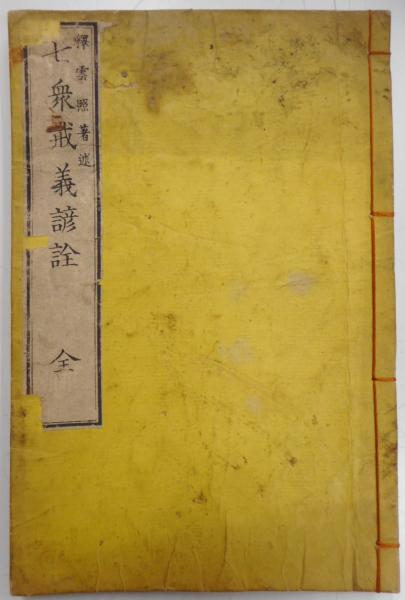 釋雲照著述
七衆戒義諺詮 全